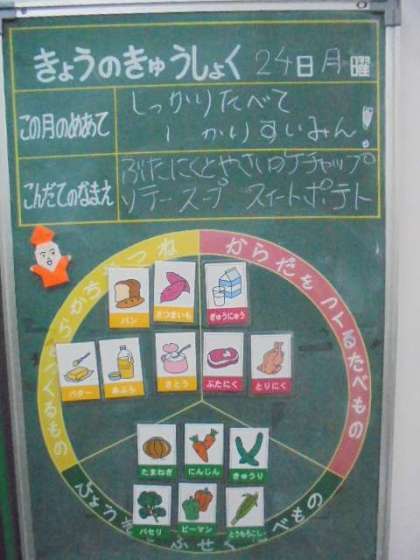 きょうのきゅうしょく 24日 月曜
この月のめあて
しっかりたべて
しっかりすいみん!
こんだてのなまえ
ぶたにくとやさいのケチャップ
ソテー スープ スイートポテト
からだをつくるたべもの
パン さつまいも ぎゅうにゅう
バター あぶら さとう ぶたにく とりにく
たまねぎ にんじん きゅうり
パセリ ピーマン とうもろこし